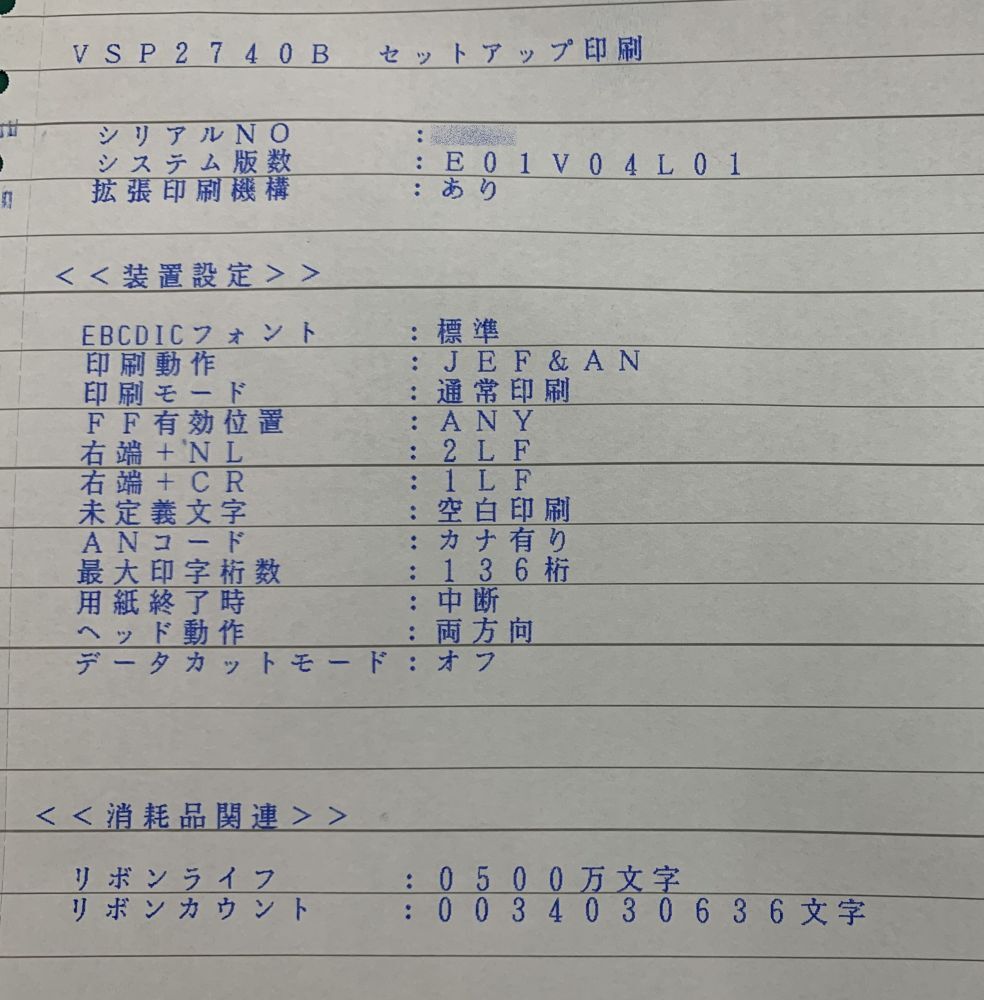 VSP2740B セットアップ印刷
シリアルNO :
システム版数 :E01V04L01
拡張印刷機構 :あり
<<装置設定>>
EBCDICフォント :標準
印刷動作 :JEF&AN
印刷モード :通常印刷
FF有効位置 :ANY
右端+NL :2LF
右端+CR :1LF
未定義文字 :空白印刷
ANコード :カナ有り
最大印字桁数 :136桁
用紙終了時 :中断
ヘッド動作 :両方向
データカットモード:オフ
<<消耗品関連>>
リボンライフ :0500万文字
リボンカウント :0034030636文字